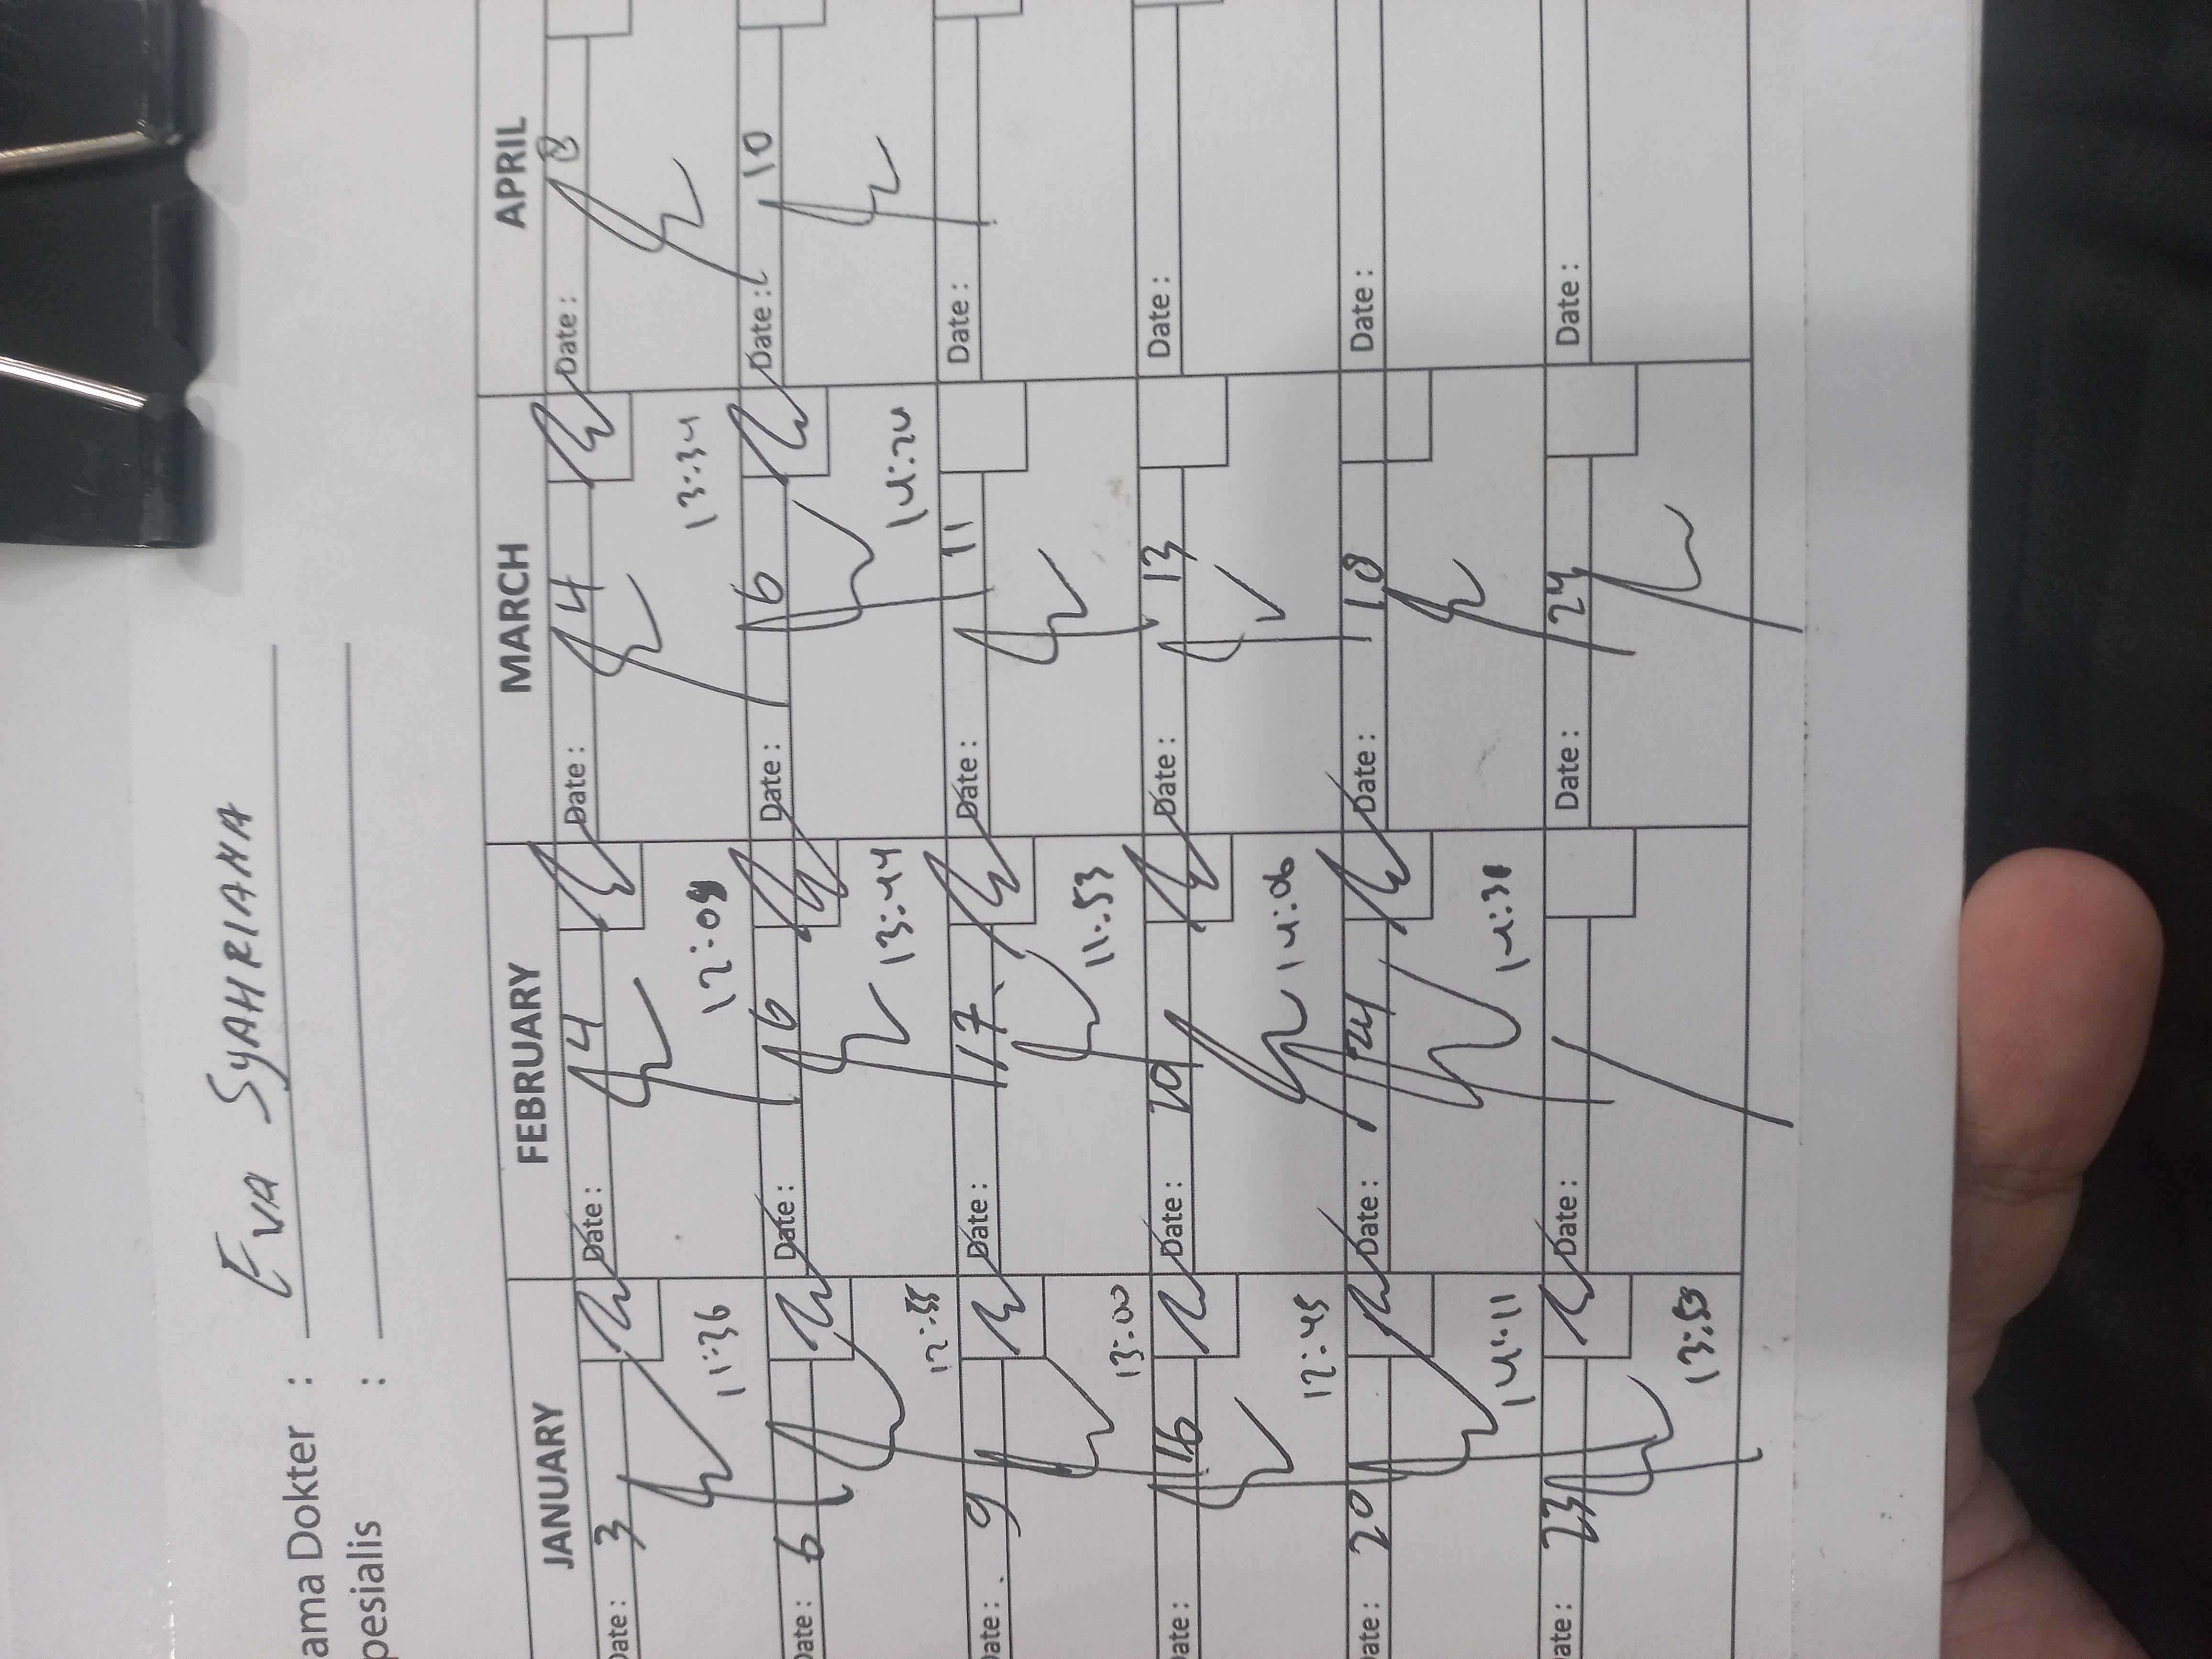 ama Dokter : Eva SYAHRIANA
pesialis :
JANUARY FEBRUARY MARCH APRIL
ate : 3 Date : 4 Date : 4 Date : 8
11:36 12:09 13:34
ate : 6 Date : 6 Date : 6 Date : 10
12:55 13:44 14:24
ate : 9 Date : 17 Date : 11 Date :
13:00 11:53
ate : 16 Date : 19 Date : 13 Date :
12:45 14:06
ate : 20 Date : 24 Date : 18 Date :
14:11
ate : 23 Date : Date : 24 Date :
13:53